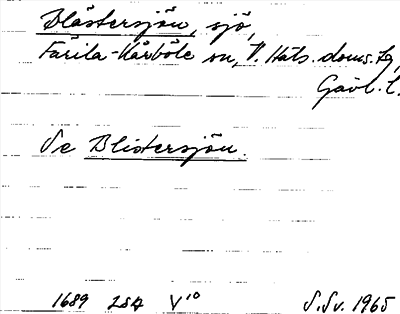 Blästersjön, sjö,
Färila-Kårböle sn, V. Häls. doms. tg,
Gävl. l.
Se Blistersjön.
1689 LSA V¹⁰ S.Sv. 1965